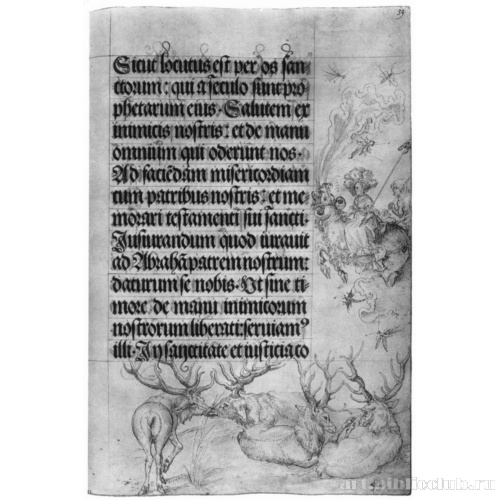 39
Sicut locutus est per os san-
ctorum: qui a seculo sunt pro-
phetarum eius. Salutem ex
inimicis nostris: et de manu
omnium qui oderunt nos.
Ad faciēdam misericordiam
cum patribus nostris: et me-
morari testamenti sui sancti.
Jusiurandum quod iurauit
ad Abrahā patrem nostrum:
daturum se nobis. Ut sine ti-
more de manu inimicorum
nostrorum liberati: seruiamꝰ
illi. In sanctitate et iusticia co
art.biblioclub.ru